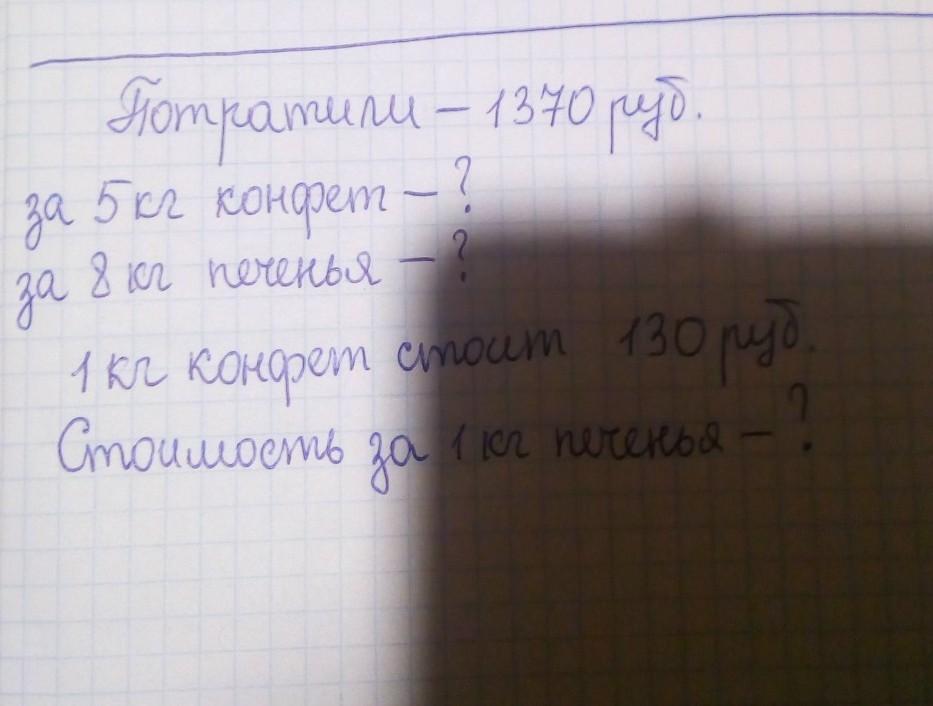 Потратили – 1370 руб.
за 5 кг конфет – ?
за 8 кг печенья – ?
1 кг конфет стоит 130 руб.
Стоимость за 1 кг печенья – ?